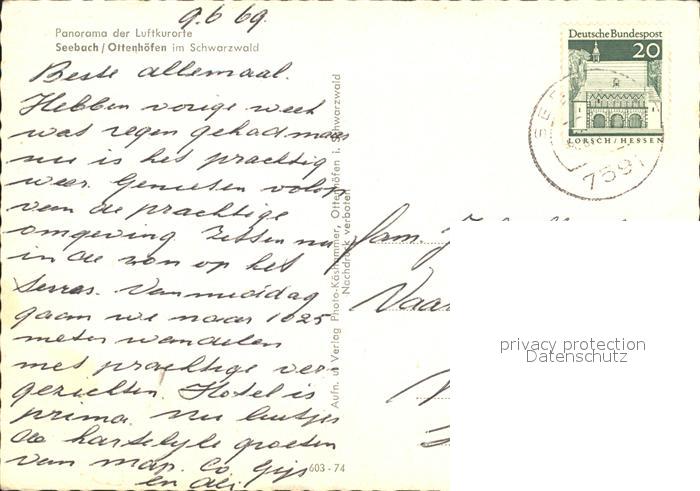 9.6 69.
Panorama der Luftkurorte
Seebach / Ottenhöfen im Schwarzwald
Beste allemaal.
Hebben vorige week
wat regen gehad maar
nu is het prachtig
weer. Genieten volop
van de prachtige
omgeving zitten nu
in de zon op het
terras. Vanmiddag
gaan we naar 1025
meter wandelen
met prachtige ver-
gezichten. Hotel is
prima. Nu luitjes
de hartelyke groeten
van map. Co Gijs
en Ali
Aufn. u. Verlag Photo-Käshammer, Ottenhöfen i. Schwarzwald
Nachdruck verboten
603 - 74
Deutsche Bundespost
20
LORSCH / HESSEN
7591
Fam.
Vaar
privacy protection
Datenschutz